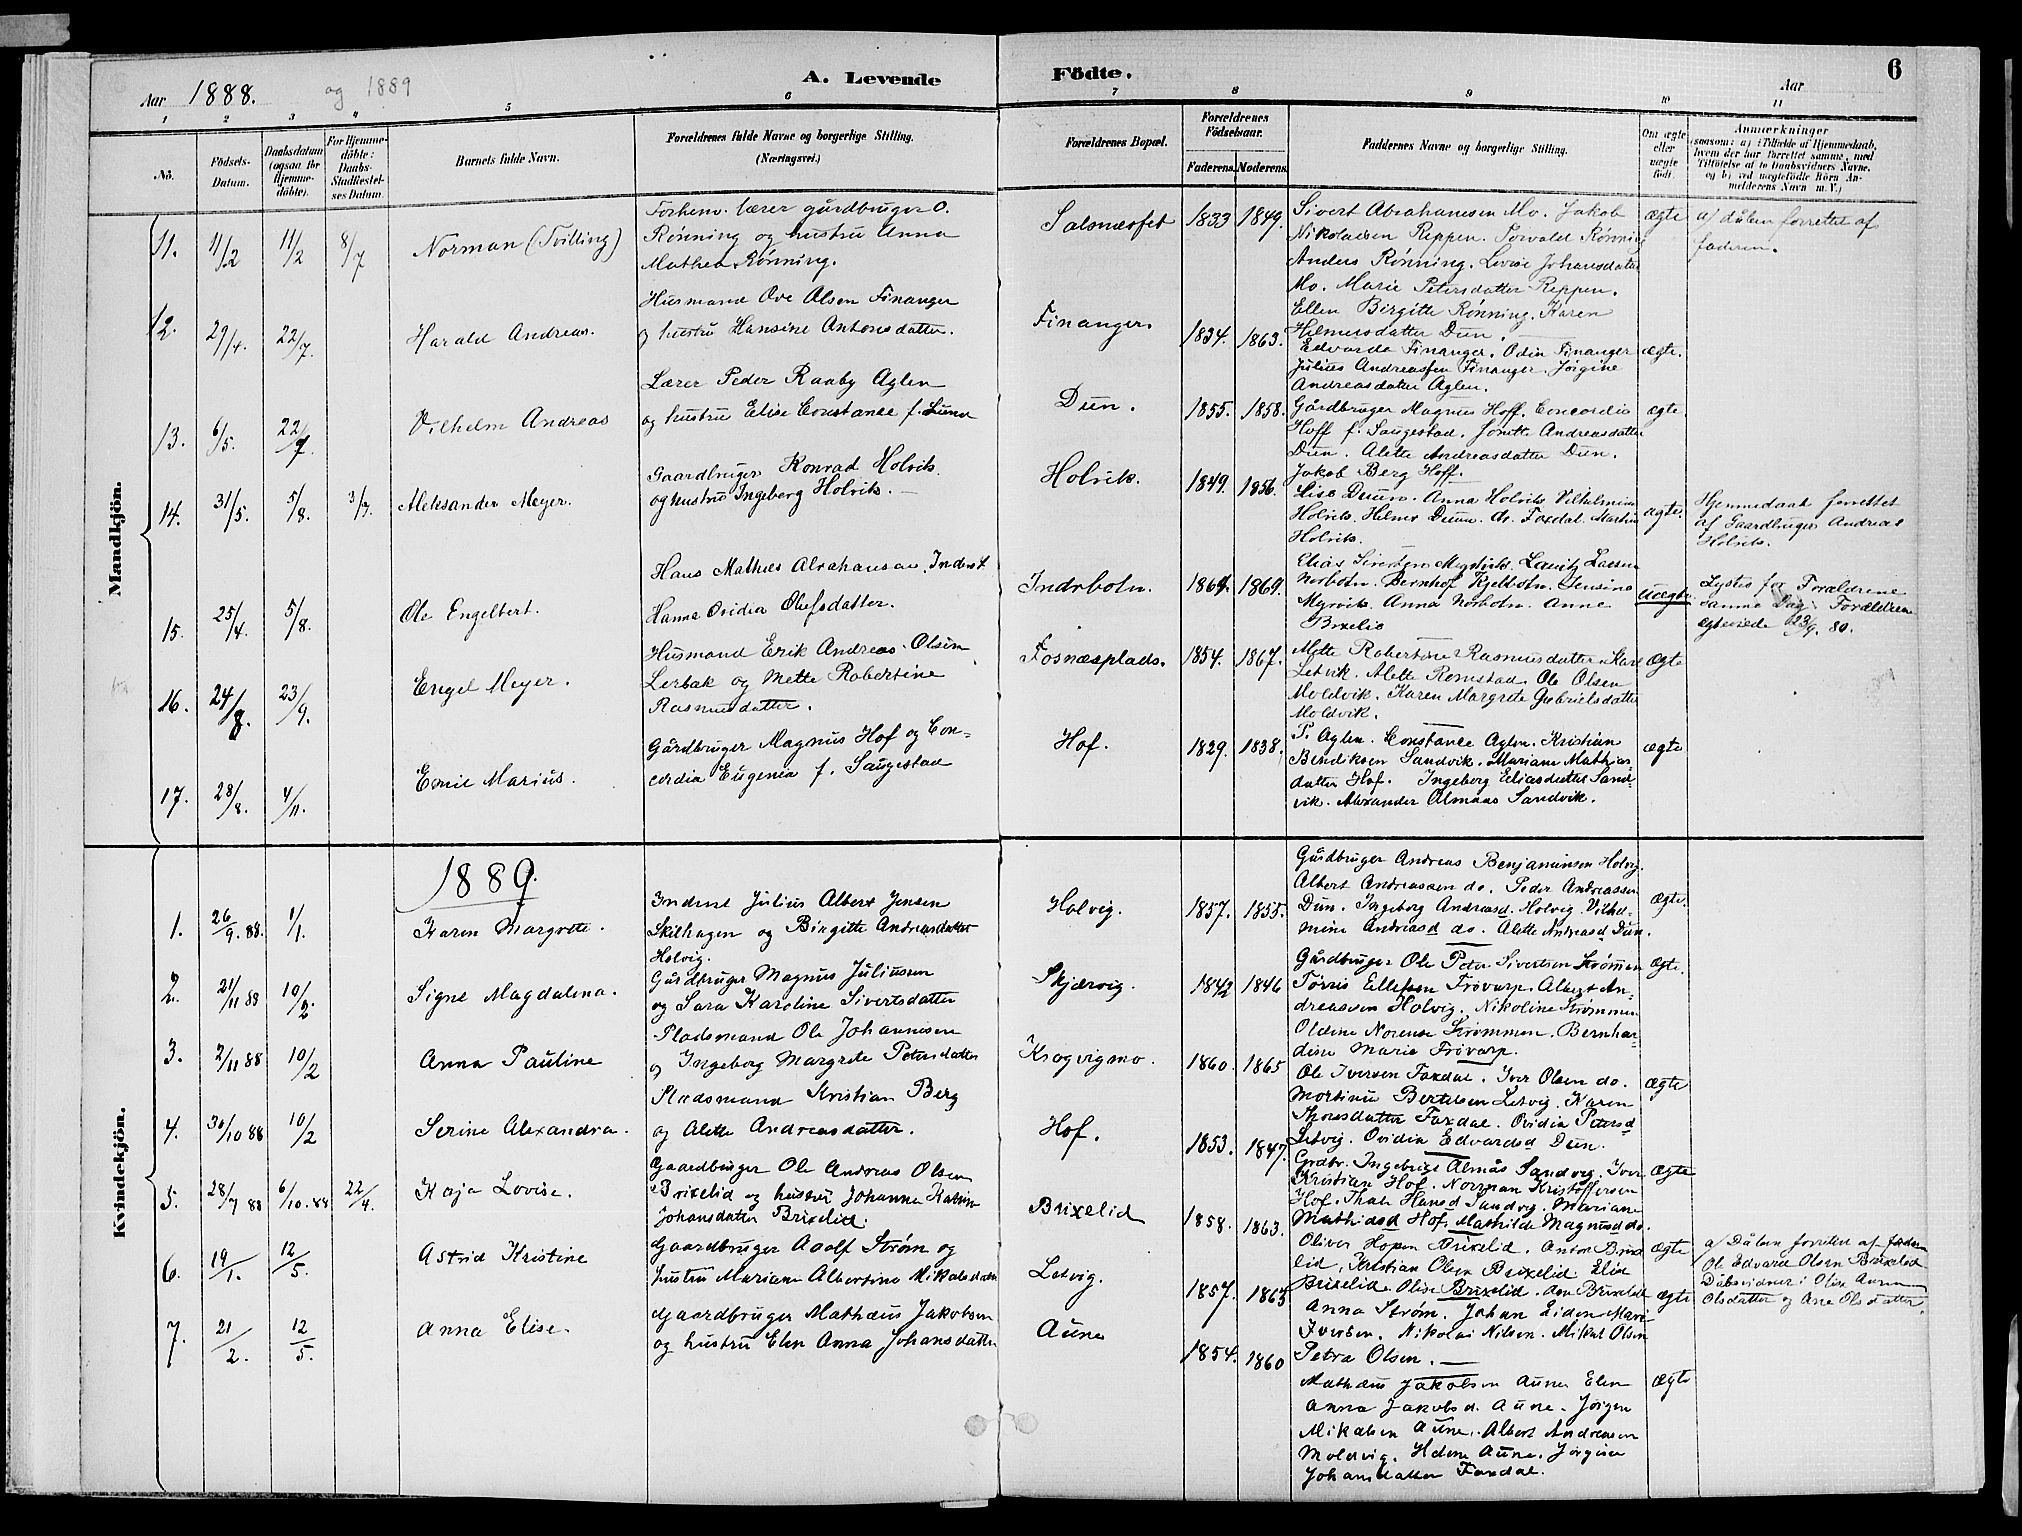 Aar 1888. og 1889
A. Levende Födte.
Aar
6
1 2 3 4 5 6 7 8 9 10 11
No.
Födsels-Datum.
Daabsdatum (ogsaa för Hjemme-döbte).
For Hjemme-döbte: Daabs-Stadfæstel-ses Datum.
Barnets fulde Navn.
Forældrenes fulde Navne og borgerlige Stilling.
(Næringsvei.)
Forældrenes Bopæl.
Forældrenes Födselsaar.
Faderens. Moderens.
Faddernes Navne og borgerlige Stilling.
Om ægte eller uægte födt.
Anmærkninger
(saasom: a) i Tilfælde af Hjemmedaab,
hvem der har forrettet samme, med
Tilföielse af to Daabsvidners Navne.
og b) ved uægtefödte Börn An-
melderens Navn m. V.)
Mandkjön.
11. 11/2 11/2 8/7 Norman (Tvilling)
Forhenv. lærer gårdbruger O.
Rønning og hustru Anna
Mathea Rønning.
Salsnæsfet 1833 1849.
Sivert Abrahamsen Mo. Jakob
Nikolaisen Reppen. Torvald Rønning
Anders Rønning. Lovise Johansdatter
Mo. Marie Petersdatter Reppen.
Ellen Birgitte Rønning. Karen
Hilmersdatter Dun.
ægte a) dåben forrettet af
faderen.
12. 29/4. 22/7. Harald Andreas.
Husmand Ove Olsen Finanger
og hustru Hansine Antonsdatter.
Finanger. 1834. 1863.
Edvarda Finanger. Odin Finanger
Julius Andreassen Finanger. Jørgine
Andreasdatter Aglen.
ægte.
13. 6/5. 22/7 Vilhelm Andreas
Lærer Peder Raaby Aglen
og hustru Elise Constance f. Lund
Dun. 1855. 1858.
Gårdbruger Magnus Hoff. Concordia
Hoff f. Saugestad. Jonette Andreasdatter
Dun. Alette Andreasdatter Dun.
Jakob Berg Hoff.
ægte
14. 31/5. 5/8. 3/7. Aleksander Meyer.
Gaardbruger Konrad Holvik
og hustru Ingeborg Holvik.
Holvik. 1849. 1856.
Lise Duun. Anna Holvik Vilhelmine
Holvik. Helmer Duun. Martin
Holvik.
ægte. Hjemmedaab forrettet
af Gaardbruger Andreas
Holvik.
15. 25/4. 5/8. Ole Engelbert.
Hans Mathias Abrahamsen. Inderst
Hanna Ovidia Olefsdatter.
Indrholm. 1864. 1869.
Norholm. Bernhof Kjelholm.
Myrvik. Anna Norholm. Anne
Brxelid
uægte Lystes for Forældrene
samme Dag. Forældrene
ægteviede 23/9. 89.
16. 24/8. 23/9. Engel Meyer.
Husmand Erik Andreas Olsen
Lerbak og Mette Robertine
Rasmusdatter.
Fosnæsplads. 1854. 1867.
Mette Robertine Rasmusdatter.
Letvik. Alette Romstad. Ole Olsen
Moldvik. Karen Margrete Gabrielsdatter
Moldvik.
ægte
17. 28/8. 4/11. Emil Marius.
Gårdbruger Magnus Hof og Con-
cordia Eugenia f. Saugestad
Hof. 1829. 1838.
P. Aglen. Constance Aglen. Kristian
Bendiksen Sandvik. Mariane Mathias-
datter Hof. Ingeborg Eliasdatter Sand-
vik. Alexander Almaas Sandvik.
ægte
Kvindekjön.
1889.
1. 26/9. 88. 1/1. Karen Margrete.
Inderst Julius Albert Jensen
Skilhagen og Birgitte Andreasdatter
Holvig.
Holvig. 1857. 1855.
Gårdbruger Andreas Benjaminsen Holvig.
Albert Andreassen do. Peder Andreassen
Dun. Ingeborg Andreasd. Holvig. Vilhel-
mine Andreasd do. Alette Andreasd Dun.
ægte.
2. 21/11 88 10/2. Signe Magdalena.
Gårdbruger Magnus Juliussen
og Sara Karoline Sivertsdatter
Skjærvig. 1842 1846
Gårdbruger Ole Peter Sivertsen Strømmen
Tørris Ellefsen Frövarp. Albert An-
dreassen Holvig. Nikoline Strømmen
Oldine Norense Strømmen. Bernhar-
dine Marie Frövarp.
ægte.
3. 2/11 88 10/2 Anna Pauline
Pladsmand Ole Johannesen
og Ingeborg Margrete Petersdatter
Krogvigmo. 1860. 1865
Ole Iversen Faxdal. Iver Olsen do.
Mortinus Bertelsen Letvig. Karen
Faxdal. Ovidia Petersd
Letvig. Ovidia Edvardsd Dun.
ægte
4. 30/10 88 10/2 Serine Alexandra.
Pladsmand Kristian Berg
og Alette Andreasdatter.
Hof. 1853. 1847.
Grdbr. Ingebrigt Almås Sandvig. Iver
Kristian Hof. Norman Kristoffersen
Hof. Thale Hansd Sandvig. Mariane
Mathidsd Hof. Mathilde Magnusd do.
ægte
5. 28/7 88 6/10. 88 22/4. Kaja Lovise.
Gaardbruger Ole Andreas Olsen
Brixelid og hustru Johanna Katrine
Johansdatter Brixelid.
Brixelid 1858. 1863.
Oliver Hopen Brixelid. Anton Brixe-
lid, Kristian Olsen Brixelid. Elise
Brixelid. Olise Brixelid. Ane Brixelid
ægte a) Dåben forrettet af
Ole Edvard Olsen Brixelid
Dåbsvidner: Olise Anna
Olsdatter og Ane Olsdatter.
6. 19/1. 12/5. Astrid Kristine
Gaardbruger Adolf Strøm og
hustru Mariane Albertine Mikalsdatter
Letvig. 1857. 1863
Anna Strøm. Johan Liden Marie
Iversen. Nikolai Nilsen. Mikal Olsen
Petra Olsen.
ægte
7. 21/2. 12/5. Anna Elise.
Gaardbruger Mathæus Jakobsen
og hustru Elen Anna Johansdatter
Aune 1854. 1860
Mathæus Jakobsen Aune Elen
Anna Jakobsd. Aune. Jørgen
Mikalsen Aune. Albert Andreasen
Moldvig. Helene Aune. Jørgine
Johansdatter Faxdal.
ægte